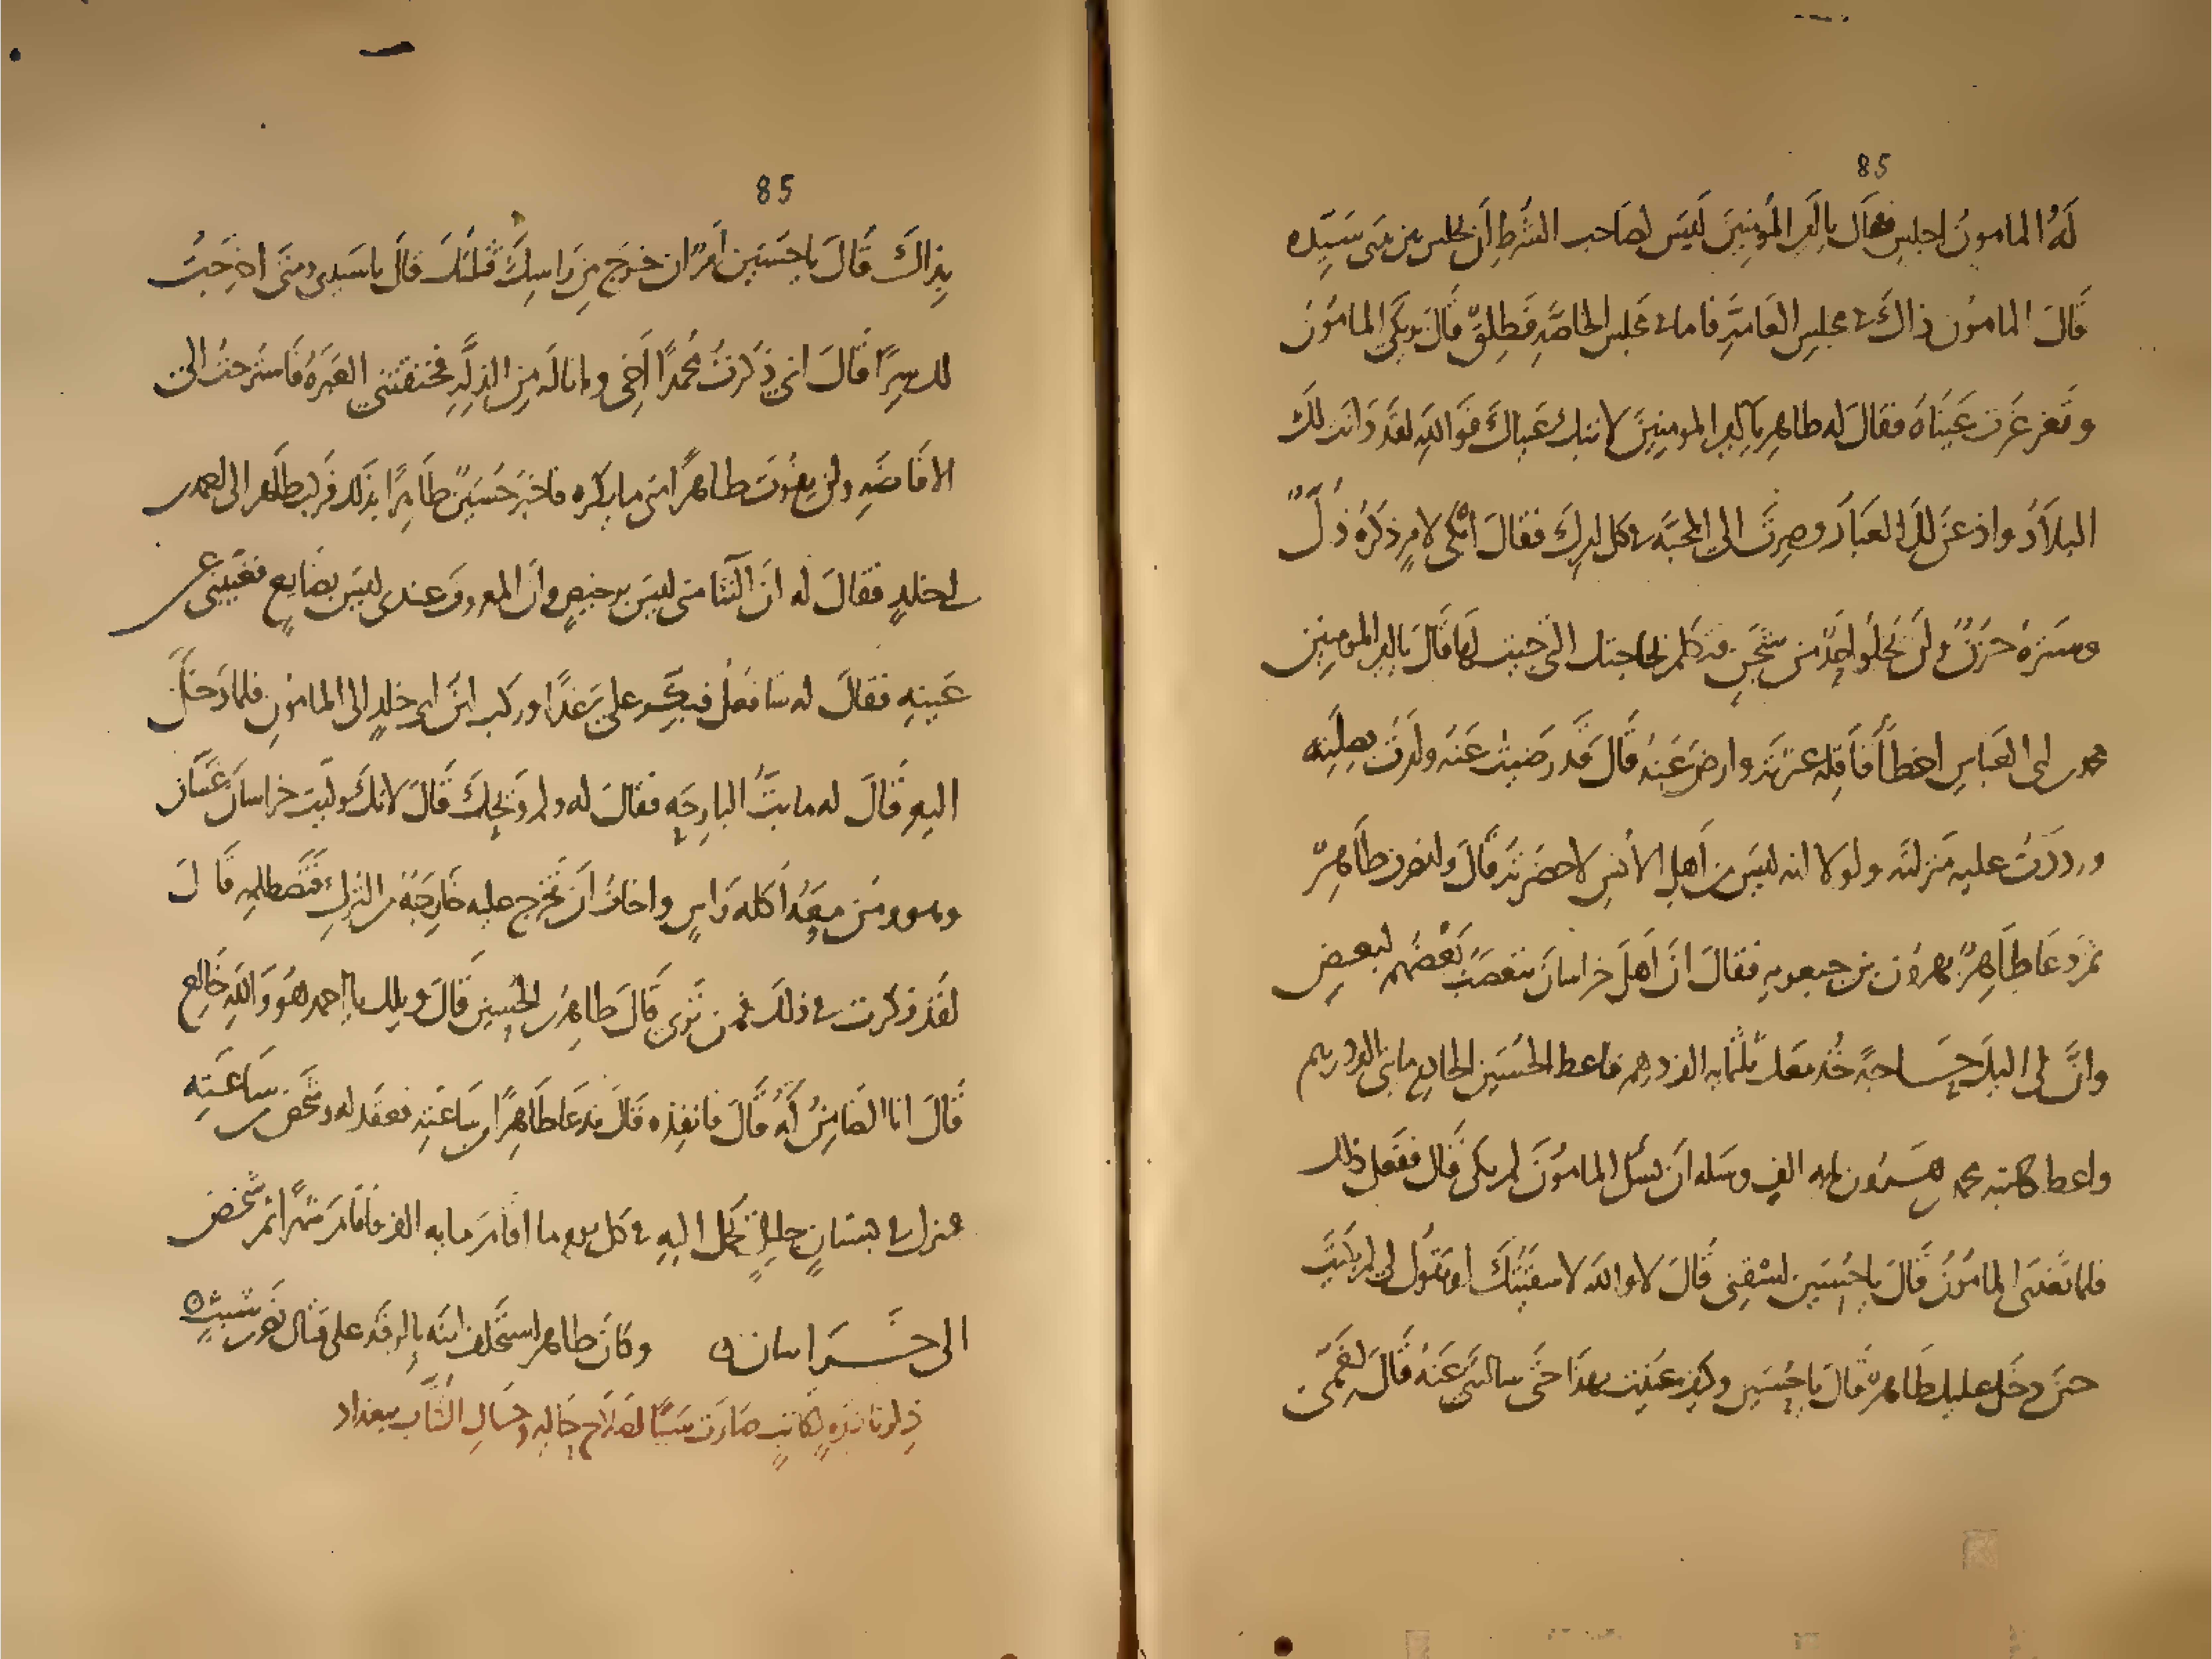 85
لَهُ المامونُ اجلس فقال يا امير المُومِنينَ لَيسَ لصَاحب الشُرَطِ ان يجلس بين يدى سَيِّده
قَالَ المامون ذاكَ فى مجلِسِ العَامَّةِ فاما فى مجلس الخاصَّةِ فَطِلقٌ قَالَ وبكَى المامُونُ
وتَغرغَرت عَينَاهُ فقالَ له طاهِر يا امير المومنِينَ لا تبك عيناكَ فوَاللهِ لقَد دَانت لكَ
البلاَدُ واذعَنَ لك العبَادُ وصِرتَ الى المحبَّه فى كل امرك فقالَ ابكى لامرٍ ذكرُهُ ذُلٌّ
وسَترهُ حزنٌ ولَن يَخلُو احَدٌ من شَجَنٍ فتكلم بحاجتك التى جيت لهَا قَالَ يا امير المومنين
محمد بن ابى العَباسِ اخطأ فاقِله عثرتَه وارضَ عَنهُ قَالَ قَد رَضيتُ عَنهُ وامرتُ بصِلَتِه
ورددتُ عليه مَنزلتَه ولولا انه ليسَ من اهلِ الأنسِ لاحضرتَه قَالَ وانصرفَ طَاهِرٌ
ثم دَعَا طَاهِرٌ بهرون بن جبعويه فقالَ انَّ اهلَ خراسانَ يتعصبُ بَعضُهم لبعضٍ
وانَّ لى اليكَ حَاجةً خُذ معكَ ثلثمايه الف درهم فاعط الحُسَين الخادم مايتى الف درهم
واعط كاتبه محمد بن هَرون مايه الف وسَله ان يَسئل المامُونَ لم بكى قَال ففعل ذلك
فلما تغدَّى المامُونُ قَالَ ياحُسَين اسقِنى قَالَ لا والله لا سقيتُكَ او تقولُ لى لم بكيتَ
حينَ دخل عليك طَاهِرٌ قالَ ياحُسَين وكيف عُنيتَ بهذا حتَّى سالتَنى عَنهُ قَالَ لغمّى
85
بِذاكَ قَالَ ياحسَين امرٌ ان خرَجَ مِن راسِكَ قتلتكَ قالَ ياسَيدى ومتَى اخرَجتُ
لك سِرًا قَالَ انى ذكرتُ محُمدًا اخى وما نالَه مِن الذِلَّةِ فخنقتنى العَبرهُ فَاسترحتُ الى
الافَاضَهِ ولن يفُوتَ طاهرًا منى ما يكره فاخبرَ حُسَينٌ طَاهِرًا بذلك فركب طَاهر الى احمد بن
ابى خلدٍ فقالَ له انَّ الثنَا منى ليسَ برخيصٍ وان المعروفَ عندى ليسَ بضَايعٍ فغيبنى عن
عَينِهِ فقالَ له سَافعَلُ فبكّر علىَّ غدًا وركب ابنُ ابى خلدٍ الى المامُونِ فلما دَخلَ
اليه قَالَ له ما بتُّ البارِحَه فقالَ له ولم ويحكَ قَالَ لانكَ وليتَ خراسانَ غَسَّان
وهو ومَن معَهُ اكله رَاسٍ واخافُ ان تخرج عليه خارِجَةٌ من التركِ فتَصطلمِه قَالَ
لقَد فكرت فى ذلكَ فمن ترى قَالَ طاهِرُ بن الحُسينِ قَالَ ويلك يا احمد هُو واللهِ خَالعٌ
قَالَ انا الضَامِنُ لَهُ قَالَ فانفِذه قَالَ فدعَا طَاهِرًا من سَاعَتِه فعقَد له وشخص من سَاعَتِه
فنزل فى بستانِ خليلٍ فحُمل اليهِ فى كل يوم ما اقامَ مايه الف فاقامَ شهرًا ثم شخصَ
الى خـــراسان وكانَ طاهر استَخلفَ ابنَه بالرقه على قتالِ نَصر بن شبثٍ
ذكر نادرةٍ لكاتبٍ صَارت سَببًا لصَلاحِ حَالِهِ وحَالِ الكتّاب ببغداد